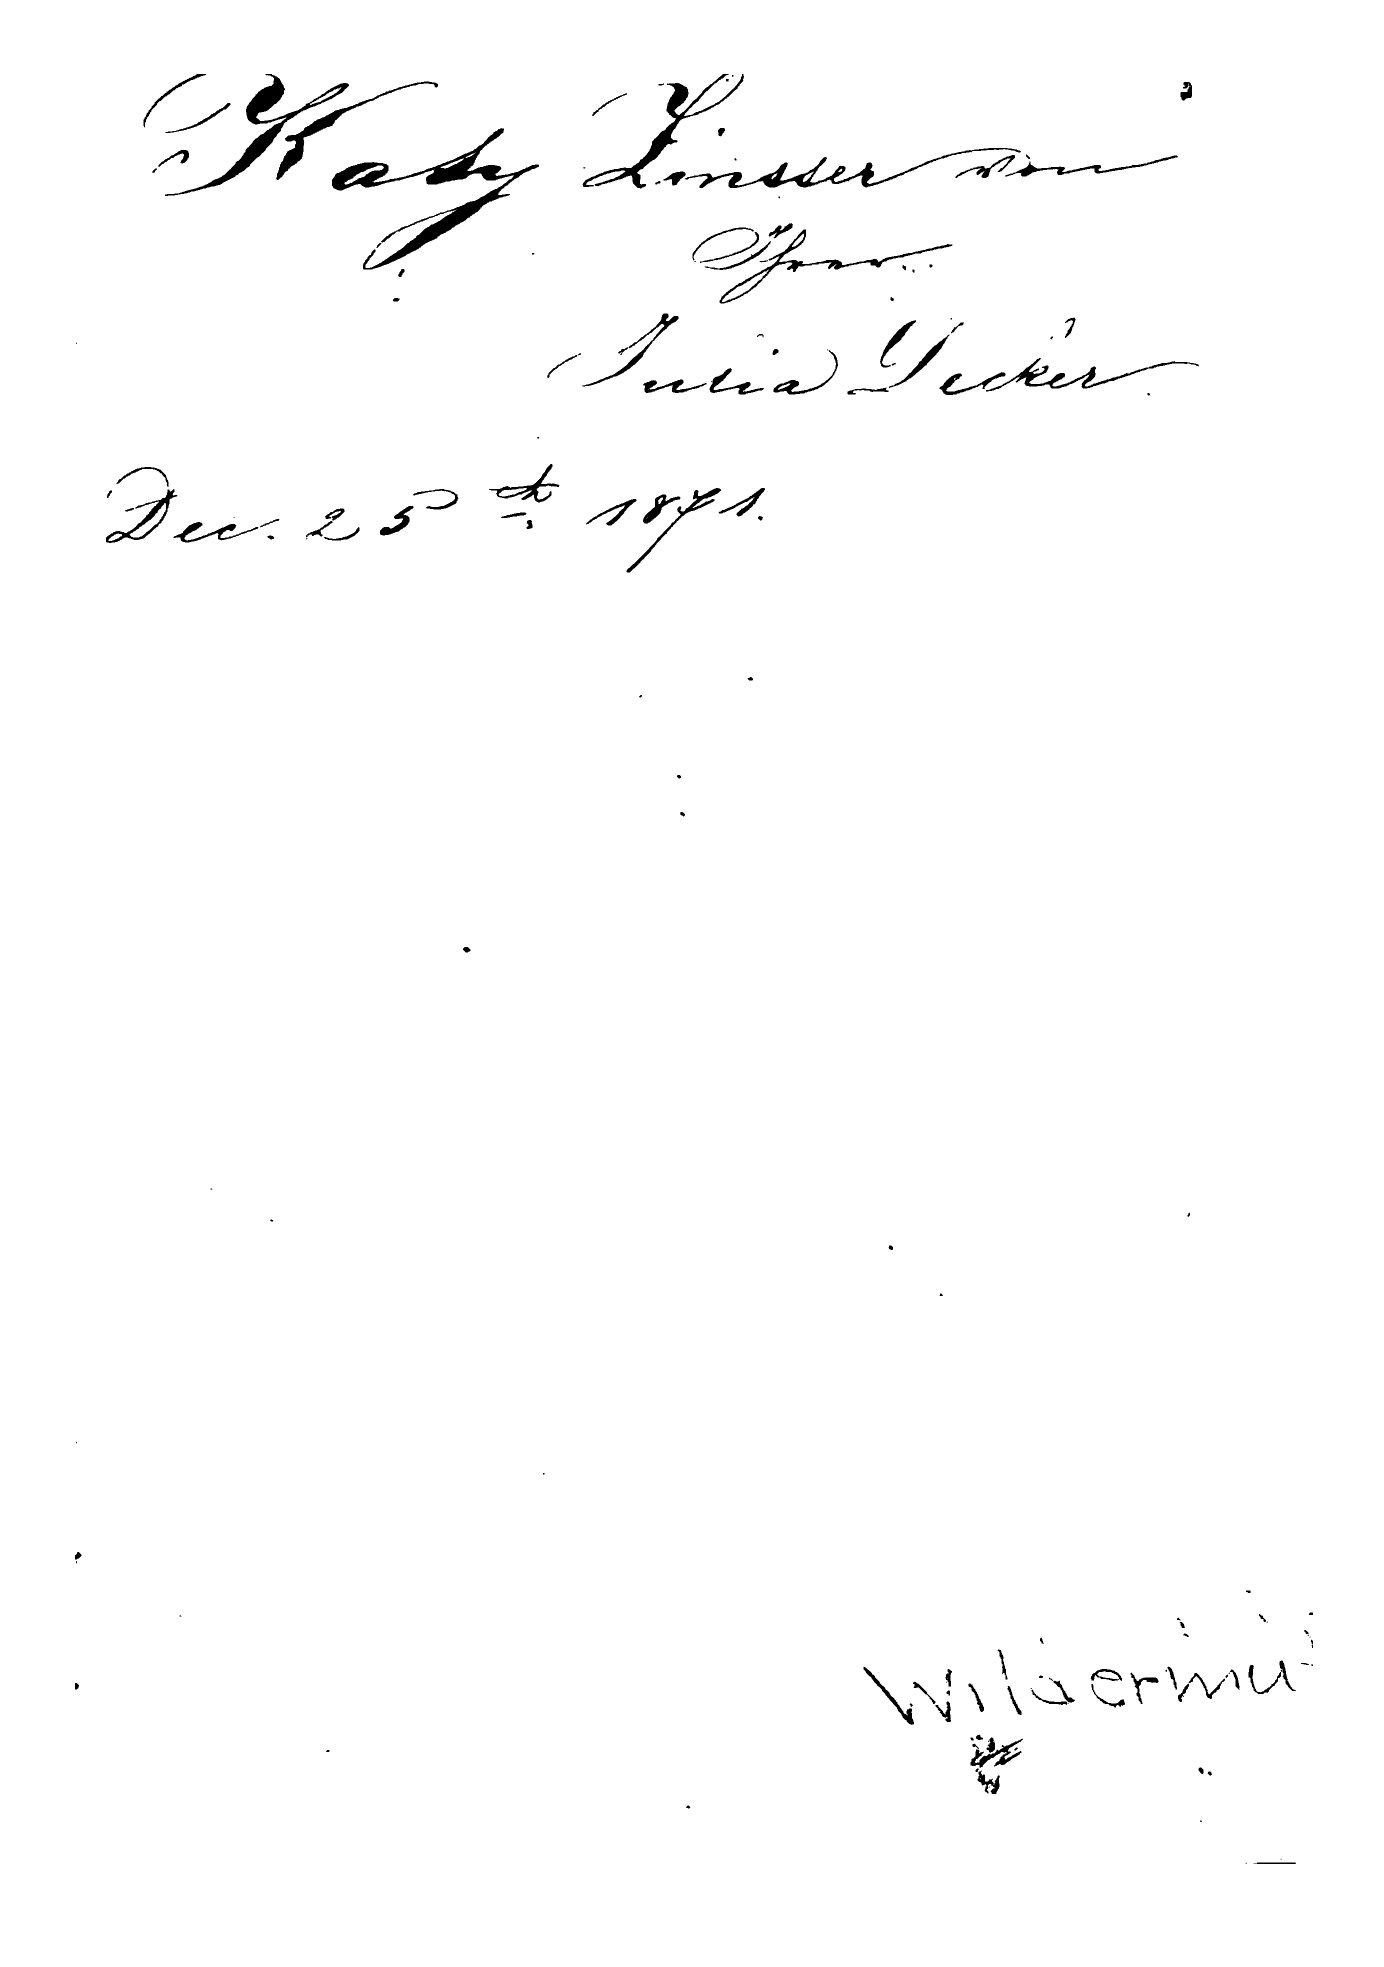 Katy Zinsser von
Ihrer
Julia Decker
Dec. 25th 1871.
Wildermu